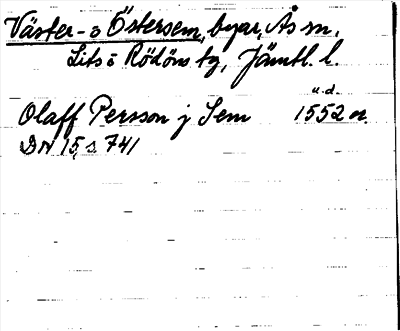 Väster- o Östersem, byar, Ås sn,
Lits o Rödöns tg, Jämtl. l.
u.d.
Olaff Persson j Sem 1552 n.
DN 15, s. 741